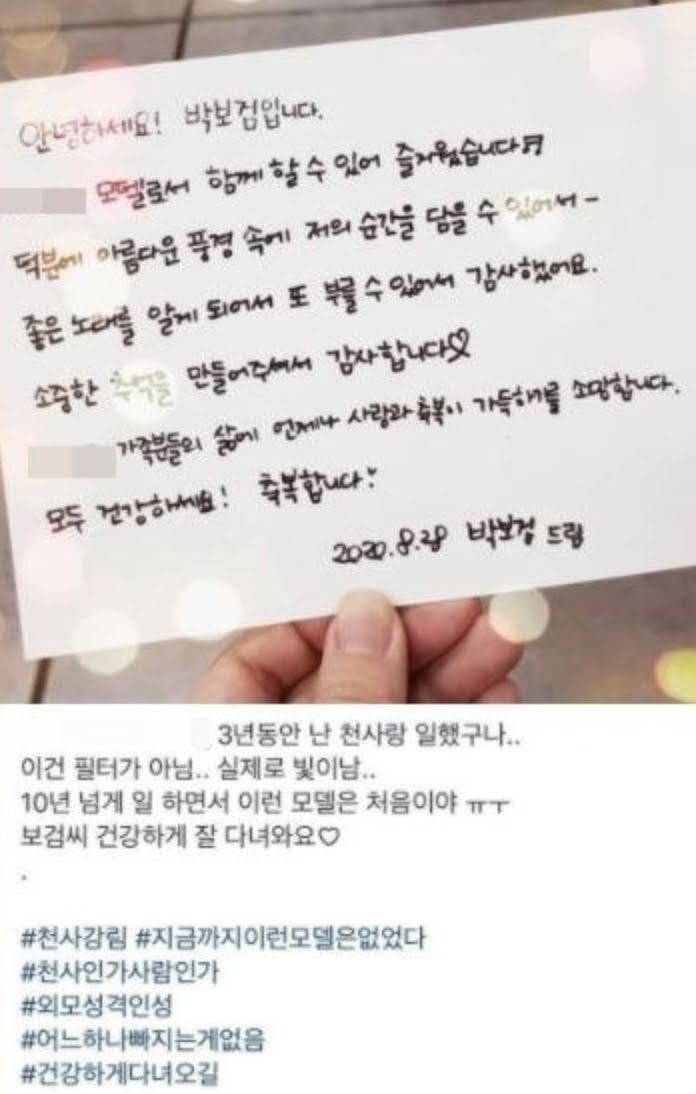 안녕하세요! 박보검입니다.
모델로서 함께 할 수 있어 즐거웠습니다♬
덕분에 아름다운 풍경 속에 저의 순간을 담을 수 있어서-
좋은 노래를 알게 되어서 또 부를 수 있어서 감사했어요.
소중한 추억을 만들어주셔서 감사합니다♡
가족분들의 삶에 언제나 사랑과 축복이 가득하기를 소망합니다.
모두 건강하세요! 축복합니다:
2020.8.28 박보검 드림
3년동안 난 천사랑 일했구나..
이건 필터가 아님.. 실제로 빛이남..
10년 넘게 일 하면서 이런 모델은 처음이야 ㅠㅜ
보검씨 건강하게 잘 다녀와요♡
.
#천사강림 #지금까지이런모델은없었다
#천사인가사람인가
#외모성격인성
#어느하나빠지는게없음
#건강하게다녀오길